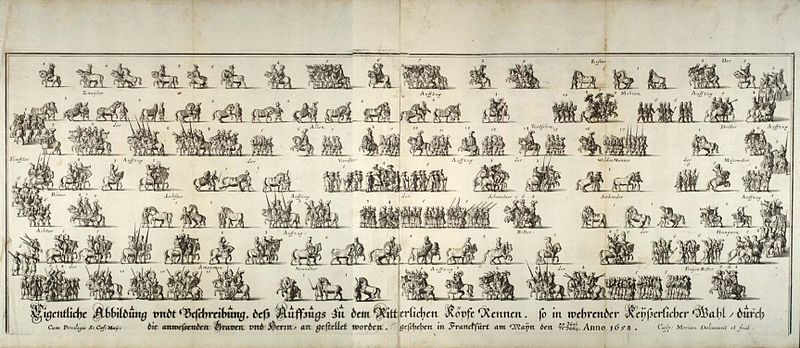 Erster Der
Zweyter Auffzug Mohren Auffzug
der Alten Teutschen Dritter
Fünffter Auffzug der Vierdter Auffzug der Wilden Männer der
Römer Sechster Auffzug der Schweitzer Siebender Auffzug
Achter Auffzug Ritter der Hungarn
der Amazonen Neundter Auffzug der Freyen Ritter
Eigentliche Abbildung vndt Beschreibung deß Auffzugs zu dem Ritterlichen Köpfe Rennen. so in wehrender Keyßerlicher Wahl / durch
Cum Privilegio Sc. Cæs. Mayis die anwesenden Graven vnd Herrn, an gestellet worden. geschehen in Franckfurt am Mayn den Anno 1658. Casp. Merian Delineavit et fecit.